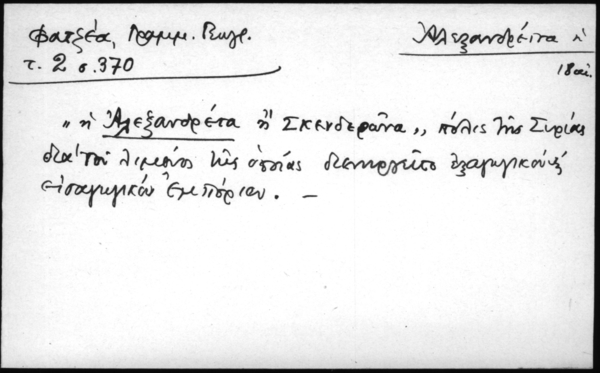 Φατζέα, Γραμμ. Γεωγρ.
τ. 2 σ. 370
Ἀλεξανδρέττα ἡ
18 αἰ.
"ἡ Ἀλεξανδρέτα ἢ Σκενδερῶνα", πόλις τῆς Συρίας
διὰ τοῦ λιμένος τῆς ὁποίας διενηργεῖτο ἐξαγωγικὸν καὶ
εἰσαγωγικὸν ἐμπόριον. –